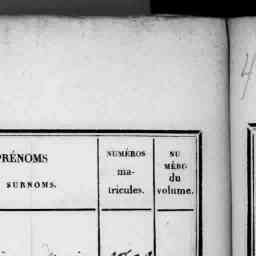 PRÉNOMS
SURNOMS.
NUMÉROS
ma-
tricules.
NU
MÉRO
du
volume.
4